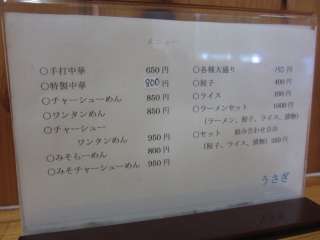 メニュー
○手打中華 650円
○特製中華 800円
○チャーシューめん 850円
○ワンタンめん 850円
○チャーシュー
ワンタンめん 950円
○みそらーめん 800円
○みそチャーシューめん 950円
○各種大盛り 150円
○餃子 400円
○ライス
○ラーメンセット 1000円
(ラーメン、餃子、ライス、漬物)
○セット 組み合わせ自由
(餃子、ライス、漬物)
うさぎ